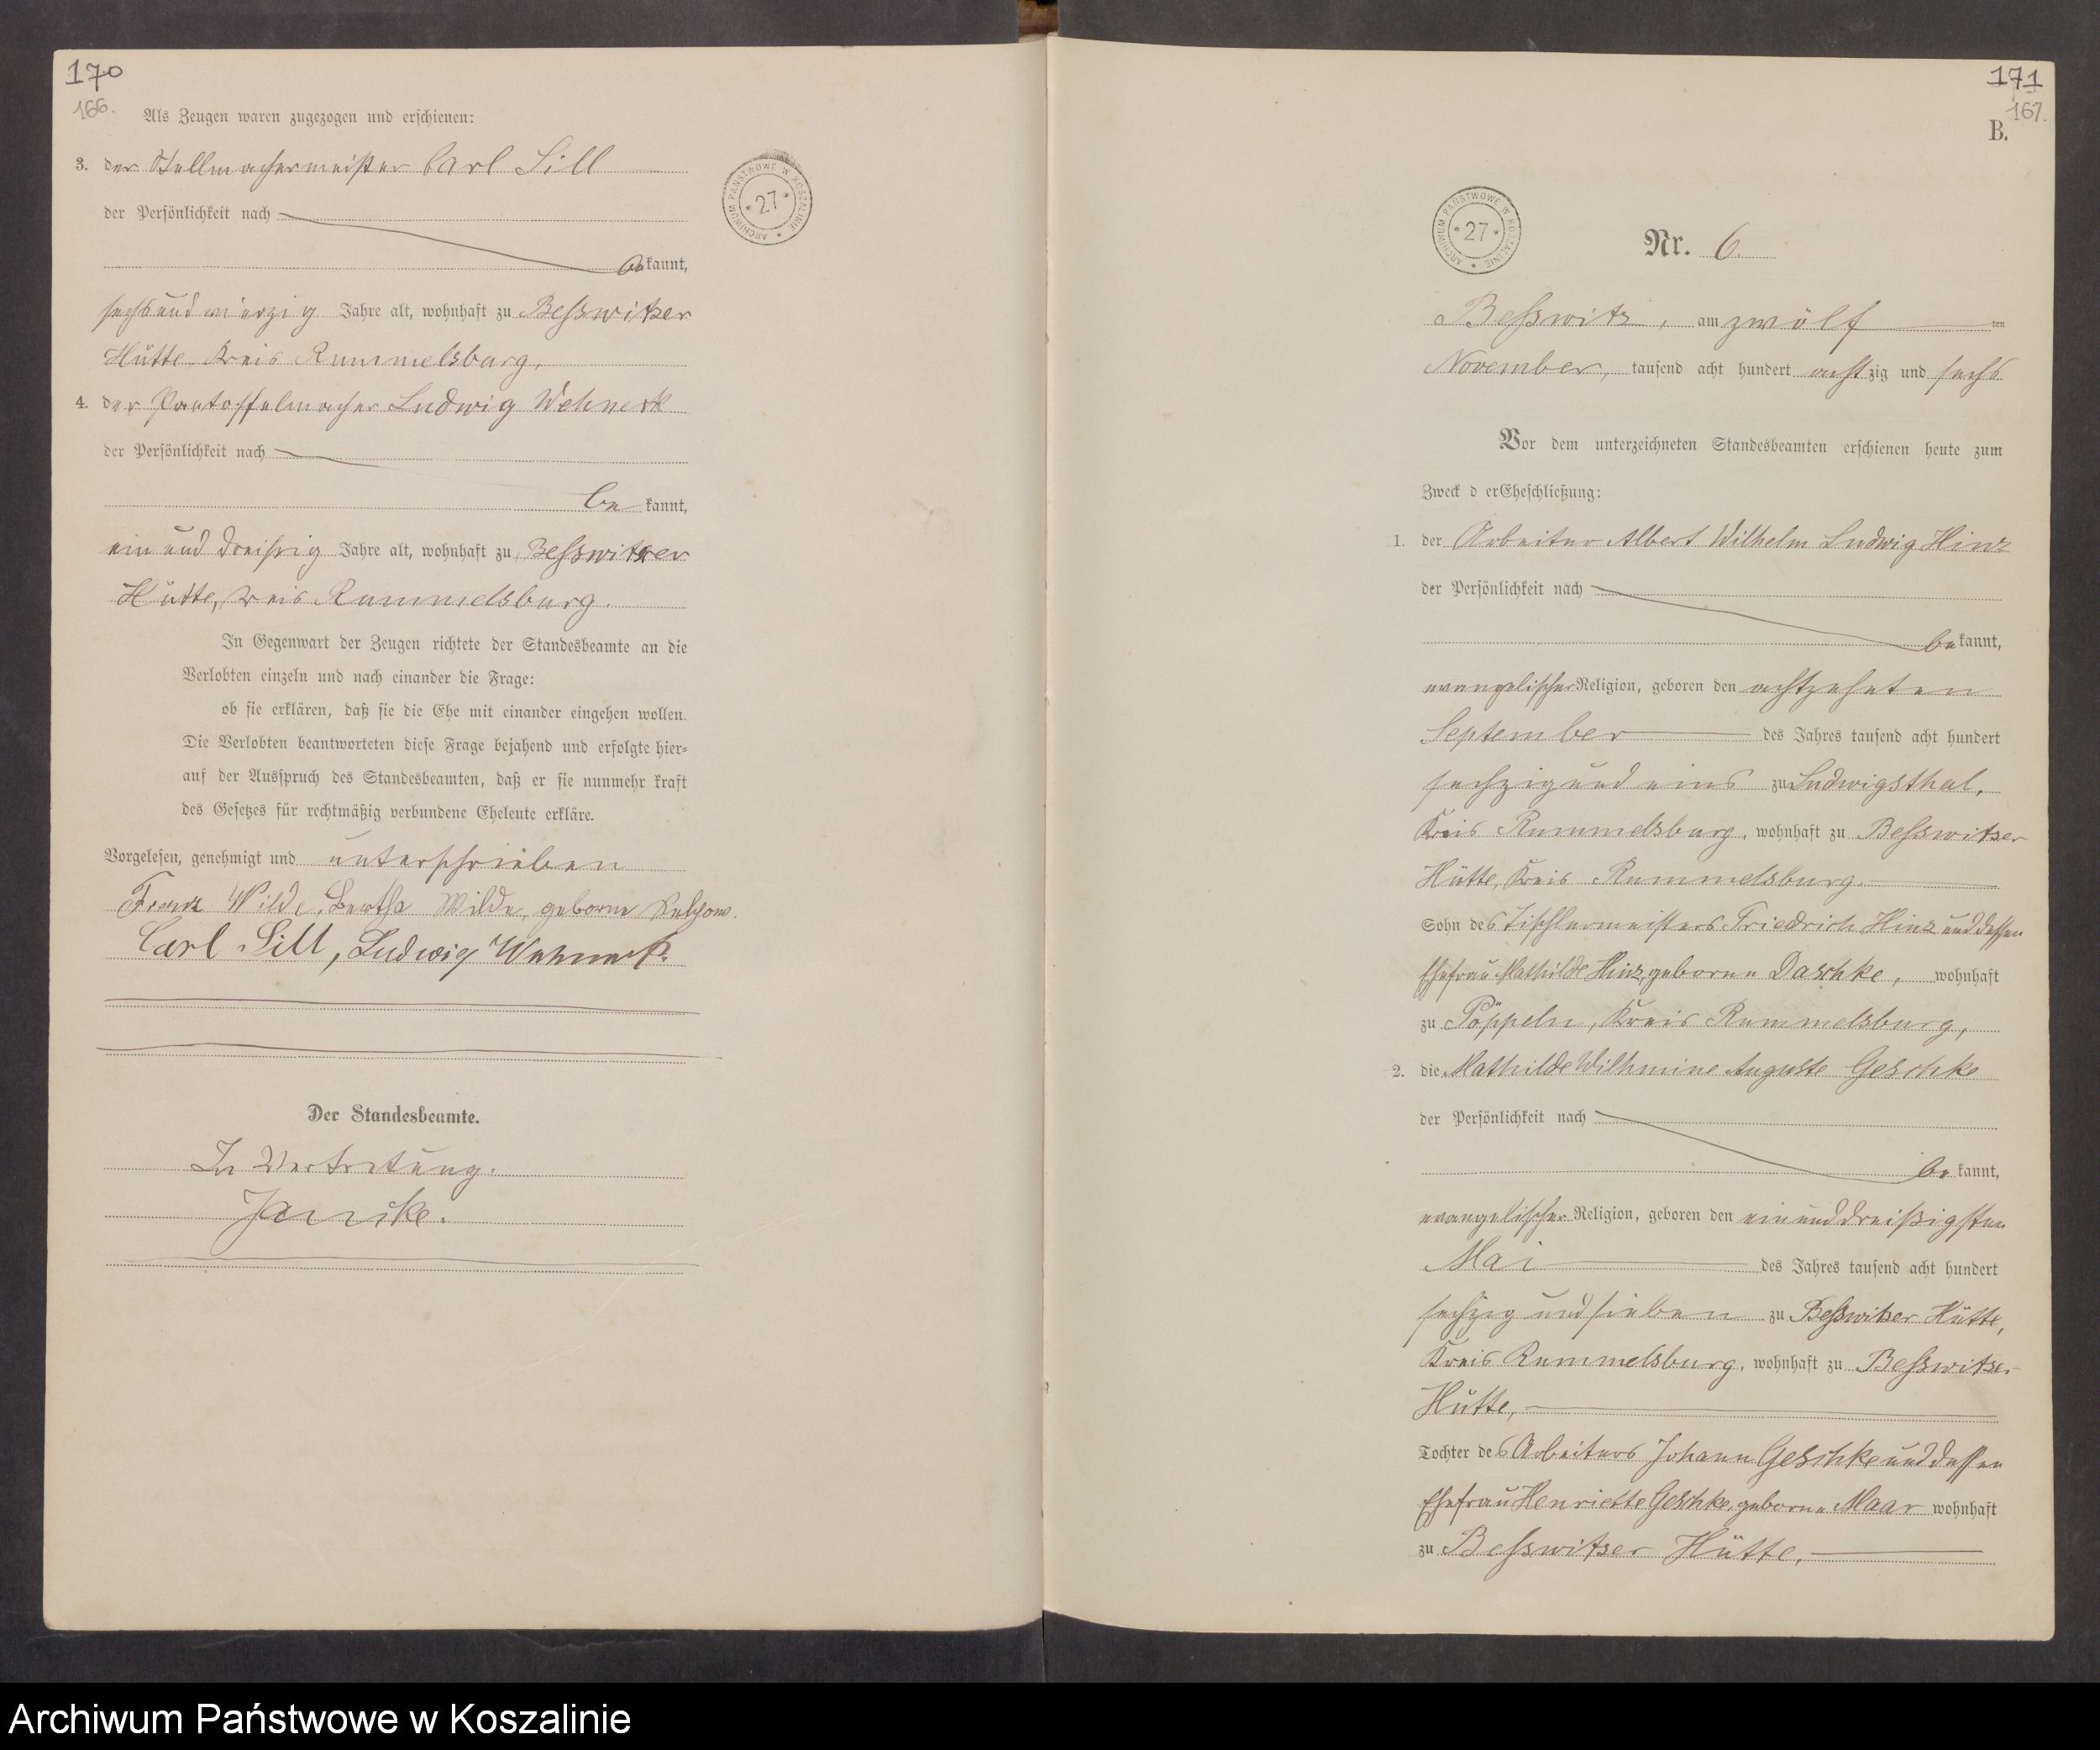 170
166.
Als Zeugen waren zugezogen und erschienen:
3. der Stellmachermeister Carl Sill
der Persönlichkeit nach
bekannt,
sechsundvierzig Jahre alt, wohnhaft zu Besswitzer
Hütte, Kreis Rummelsburg,
4. der Pantoffelmacher Ludwig Wehner
der Persönlichkeit nach
be kannt,
ein und dreissig Jahre alt, wohnhaft zu Besswitzer
Hütte, Kreis Rummelsburg.
In Gegenwart der Zeugen richtete der Standesbeamte an die
Verlobten einzeln und nach einander die Frage:
ob sie erklären, daß sie die Ehe mit einander eingehen wollen.
Die Verlobten beantworteten diese Frage bejahend und erfolgte hier=
auf der Ausspruch des Standesbeamten, daß er sie nunmehr kraft
des Gesetzes für rechtmäßig verbundene Eheleute erkläre.
Vorgelesen, genehmigt und unterschrieben
Franz Wilde, Bertha Wilde, geborne
Carl Sill, Ludwig
Der Standesbeamte.
In Vertretung.
ARCHIWUM PAŃSTWOWE W KOSZALINIE
* 27 *
171
167.
B.
ARCHIWUM PAŃSTWOWE W KOSZALINIE
* 27 *
Nr. 6.
Besswitz, am zwölf ten
November, tausend acht hundert achtzig und sechs
Vor dem unterzeichneten Standesbeamten erschienen heute zum
Zweck d erEheschließung:
1. der Arbeiter Albert Wilhelm Ludwig Hinz
der Persönlichkeit nach
bekannt,
evangelischer Religion, geboren den achtzehnten
September des Jahres tausend acht hundert
sechzig und eins zu Ludwigsthal,
Kreis Rummelsburg, wohnhaft zu Besswitzer
Hütte, Kreis Rummelsburg.
Sohn des Tischlermeisters Friedrich Hinz und dessen
Ehefrau Mathilde Hinz, geborne Daschke, wohnhaft
zu Pöppeln, Kreis Rummelsburg,
2. die Mathilde Wilhmine Auguste Geschke
der Persönlichkeit nach
be kannt,
evangelischer Religion, geboren den einunddreißigsten
Mai des Jahres tausend acht hundert
sechzig und sieben zu Besswitzer Hütte,
Kreis Rummelsburg, wohnhaft zu Besswitzer
Hütte,
Tochter des Arbeiters Johann Geschke und dessen
Ehefrau Henriette Geschke, geborne Maar wohnhaft
zu Besswitzer Hütte,
Archiwum Państwowe w Koszalinie